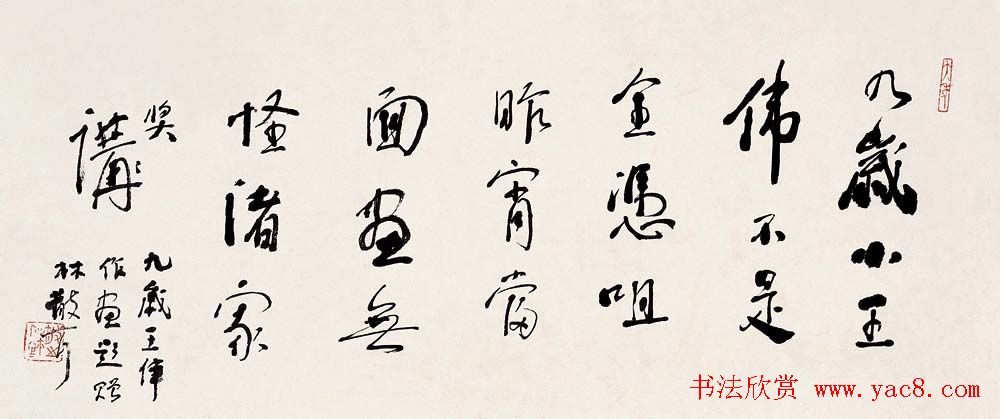 九歲小王
伟不是
全憑咀
昨宵當
面畫無
怪諸家
講
奖九歲王偉
作畫題贈
林散耳
书法欣赏 www.yac8.com